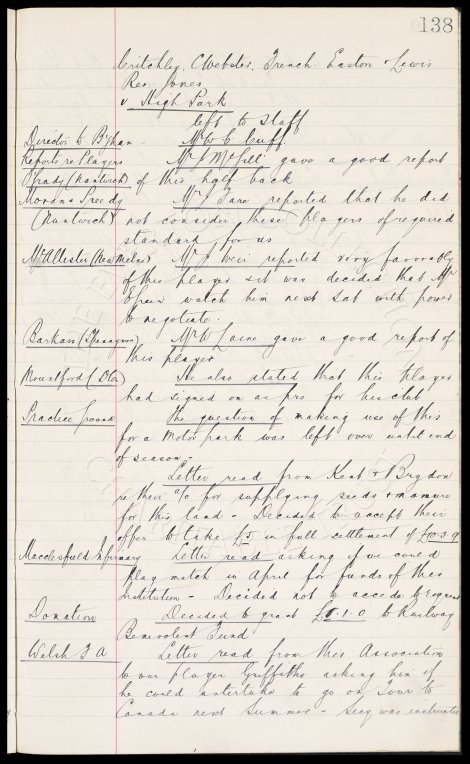 138
Critchley, C Webster, French, Easton & Lewis
Res Jones
v High Park
left to Staff
Director to B'ham - Mr W C Cuff
Reports re Players Mr J McGill gave a good report
Brady (Nantwich) of this half back
Moran & Preedy Mr J reported that he did
(Nantwich) not consider these players of required
standard for us
McAllister (New Milns) Mr J Weir reported very favorably
of this player & it was decided that Mr
watch him next Sat with power
to negotiate.
Barkas ( Mr W gave a good report of
this player
Mountford ( He also stated that this player
had signed on as pro for his club
Practice ground The question of making use of this
for a Motor park was left over until end
of season.-
Letter read from Kent & Brydon
re their a/c for supplying seeds & manure
for this land - Decided to accept their
offer to take £5 in full settlement of
Macclesfield Infirmary Letter read asking if we could
play match in April for funds of this
Institution - Decided not to accede to request
Donation Decided to grant £1.1.0 to Railway
Benevolent Fund
Welsh F A Letter read from this Association
to our player Griffiths asking him if
he could undertake to go on Tour to
Canada next Summer - Secy was instructed